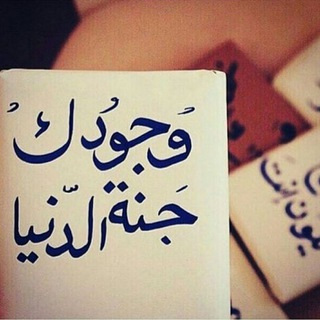 وُجودُك
جَنة الدّنيا